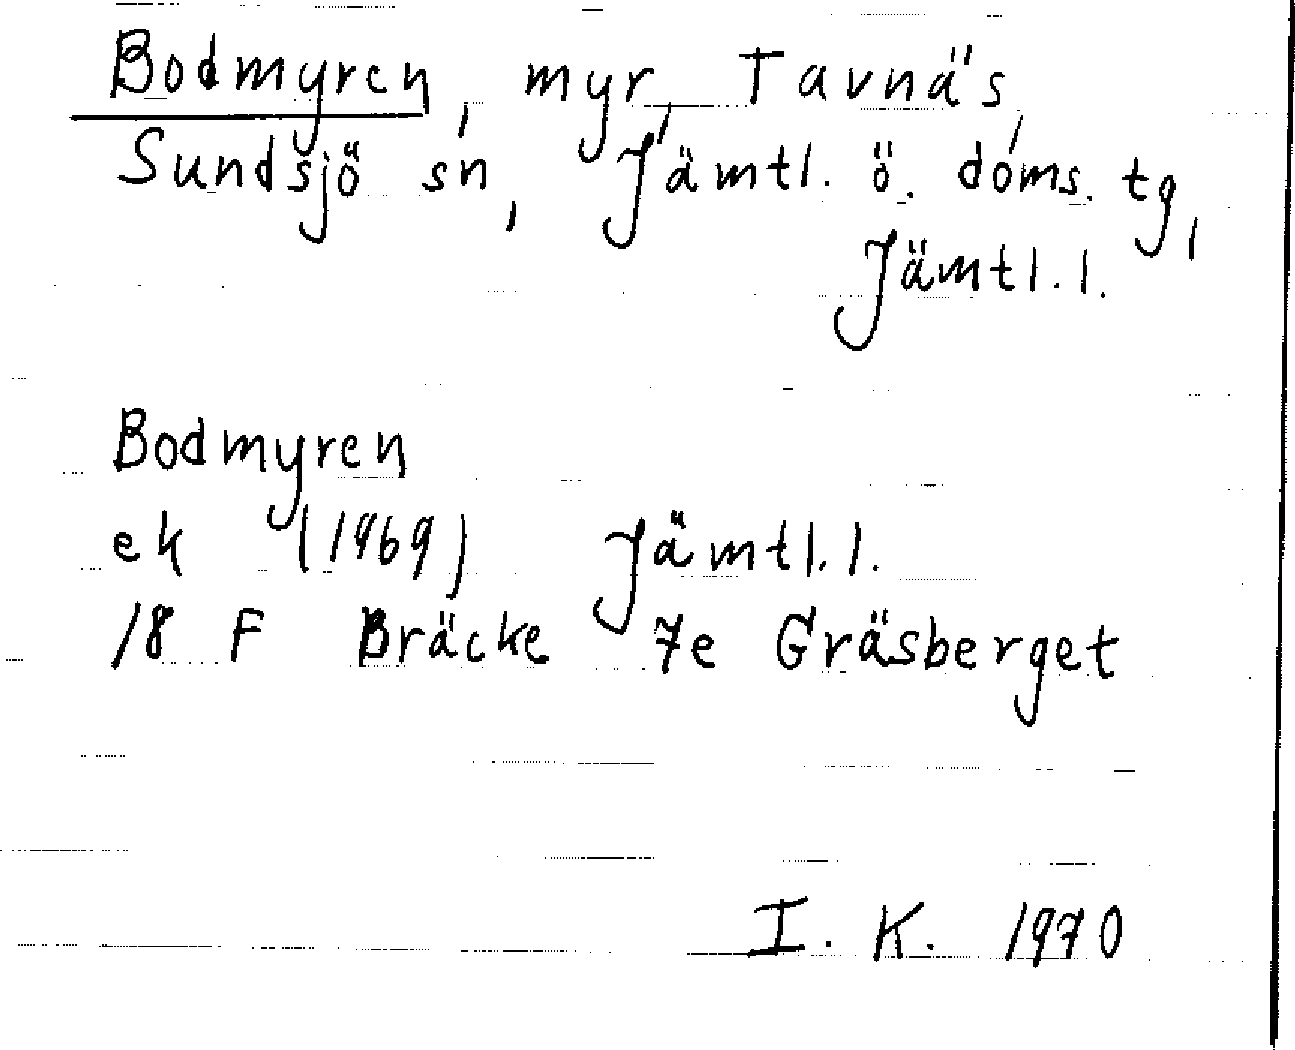 Bodmyren, myr, Tavnäs,
Sundsjö sn, Jämtl. ö. doms. tg,
Jämtl. l.
Bodmyren
ek (1969) Jämtl. l.
18 F Bräcke 7e Gräsberget
I. K. 1970